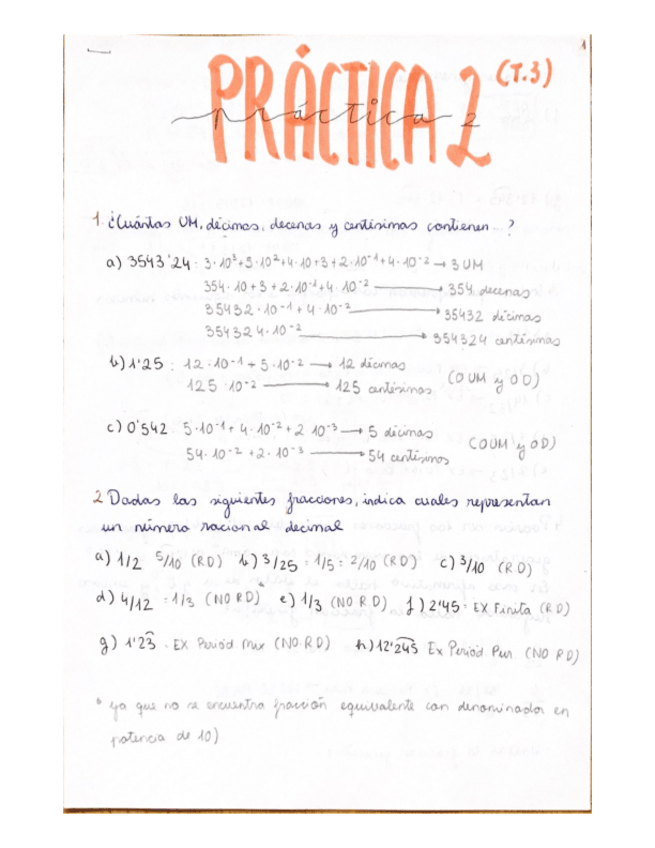 PRÁCTICA 2 (T.3)
práctica 2
1
1 ¿Cuántas UM, décimas, decenas y centésimas contienen...?
a) 3543'24 : 3·10³+5·10²+4·10+3+2·10⁻¹+4·10⁻² → 3 UM
354·10+3+2·10⁻¹+4·10⁻² → 354 decenas
35432·10⁻¹+4·10⁻² → 35432 décimas
354324·10⁻² → 354324 centésimas
b) 1'25 : 12·10⁻¹+5·10⁻² → 12 décimas
125·10⁻² → 125 centésimas (0 UM y 0 D)
c) 0'542 5·10⁻¹+4·10⁻²+2 10⁻³ → 5 décimas
54·10⁻²+2·10⁻³ → 54 centésimas (0 UM y 0D)
2 Dadas las siguientes fracciones, indica cuales representan
un número racional decimal
a) 1/2 5/10 (RD) b) 3/25 = 1/5 = 2/10 (RD) c) 3/10 (RD)
d) 4/12 = 1/3 (NO RD) e) 1/3 (NO RD) f) 2'45 = EX Finita (RD)
g) 1'23̂ . EX Periód mix (NO RD) h) 12'2͡45 Ex Periód Pur (NO RD)
* ya que no se encuentra fracción equivalente con denominador en
potencia de 10)